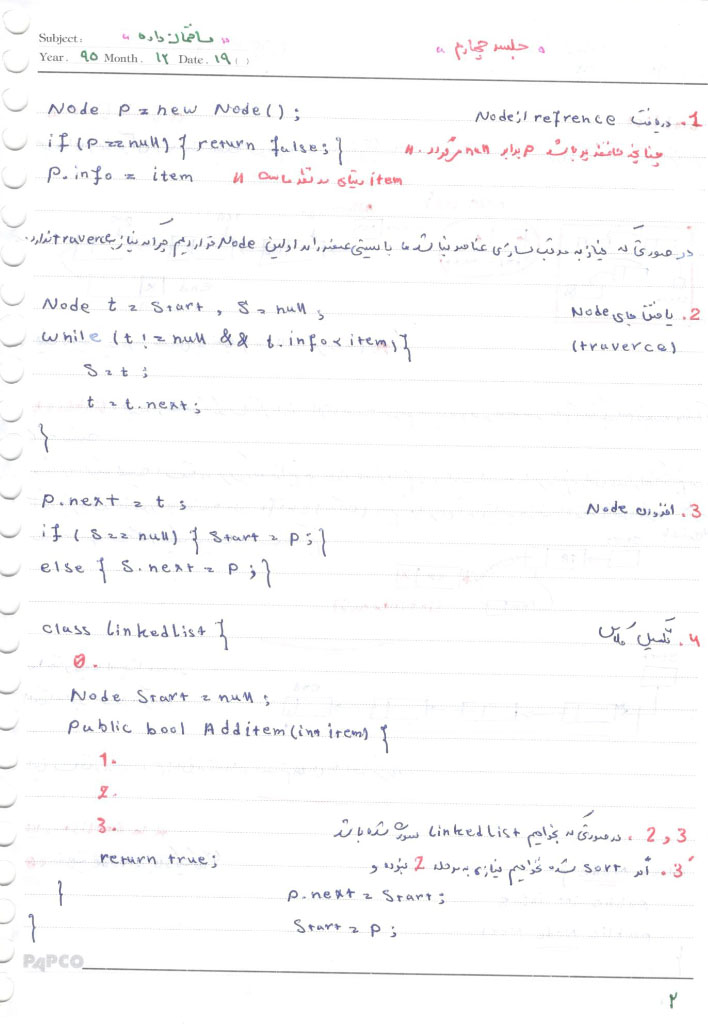 Subject: " ساختمان داده "
" جلسه چهارم "
Year. 90 Month. 12 Date. 19 ( )
1. دریافت refrence از Node
Node P = new Node();
if (P == null) { return false; } چنانچه حافظه پر باشد P برابر null میگردد. "
P.info = item " item دیتای مد نظر ماست
در صورتی که نیاز به مرتب سازی عناصر نباشد ما بایستی عنصر را در اولین Node قرار دهیم چرا که نیاز به traverce ندارد.
2. یافتن جای Node
Node t = Start , S = null ;
(traverce)
while (t != null && t.info < item) {
S = t ;
t = t.next ;
}
3. افزودن Node
P.next = t ;
if ( S == null) { Start = P ; }
else { S.next = P ; }
4. تکمیل کلاس
class LinkedList {
0.
Node Start = null ;
Public bool Additem(int item) {
1.
2.
3.
3 و 2 . در صورتی که بخواهیم LinkedList سورت شده باشد
return true ;
3́. اگر sort شده نخواهیم نیازی به مرحله 2 نبوده و
}
P.next = Start ;
}
Start = P ;
PAPCO
۲